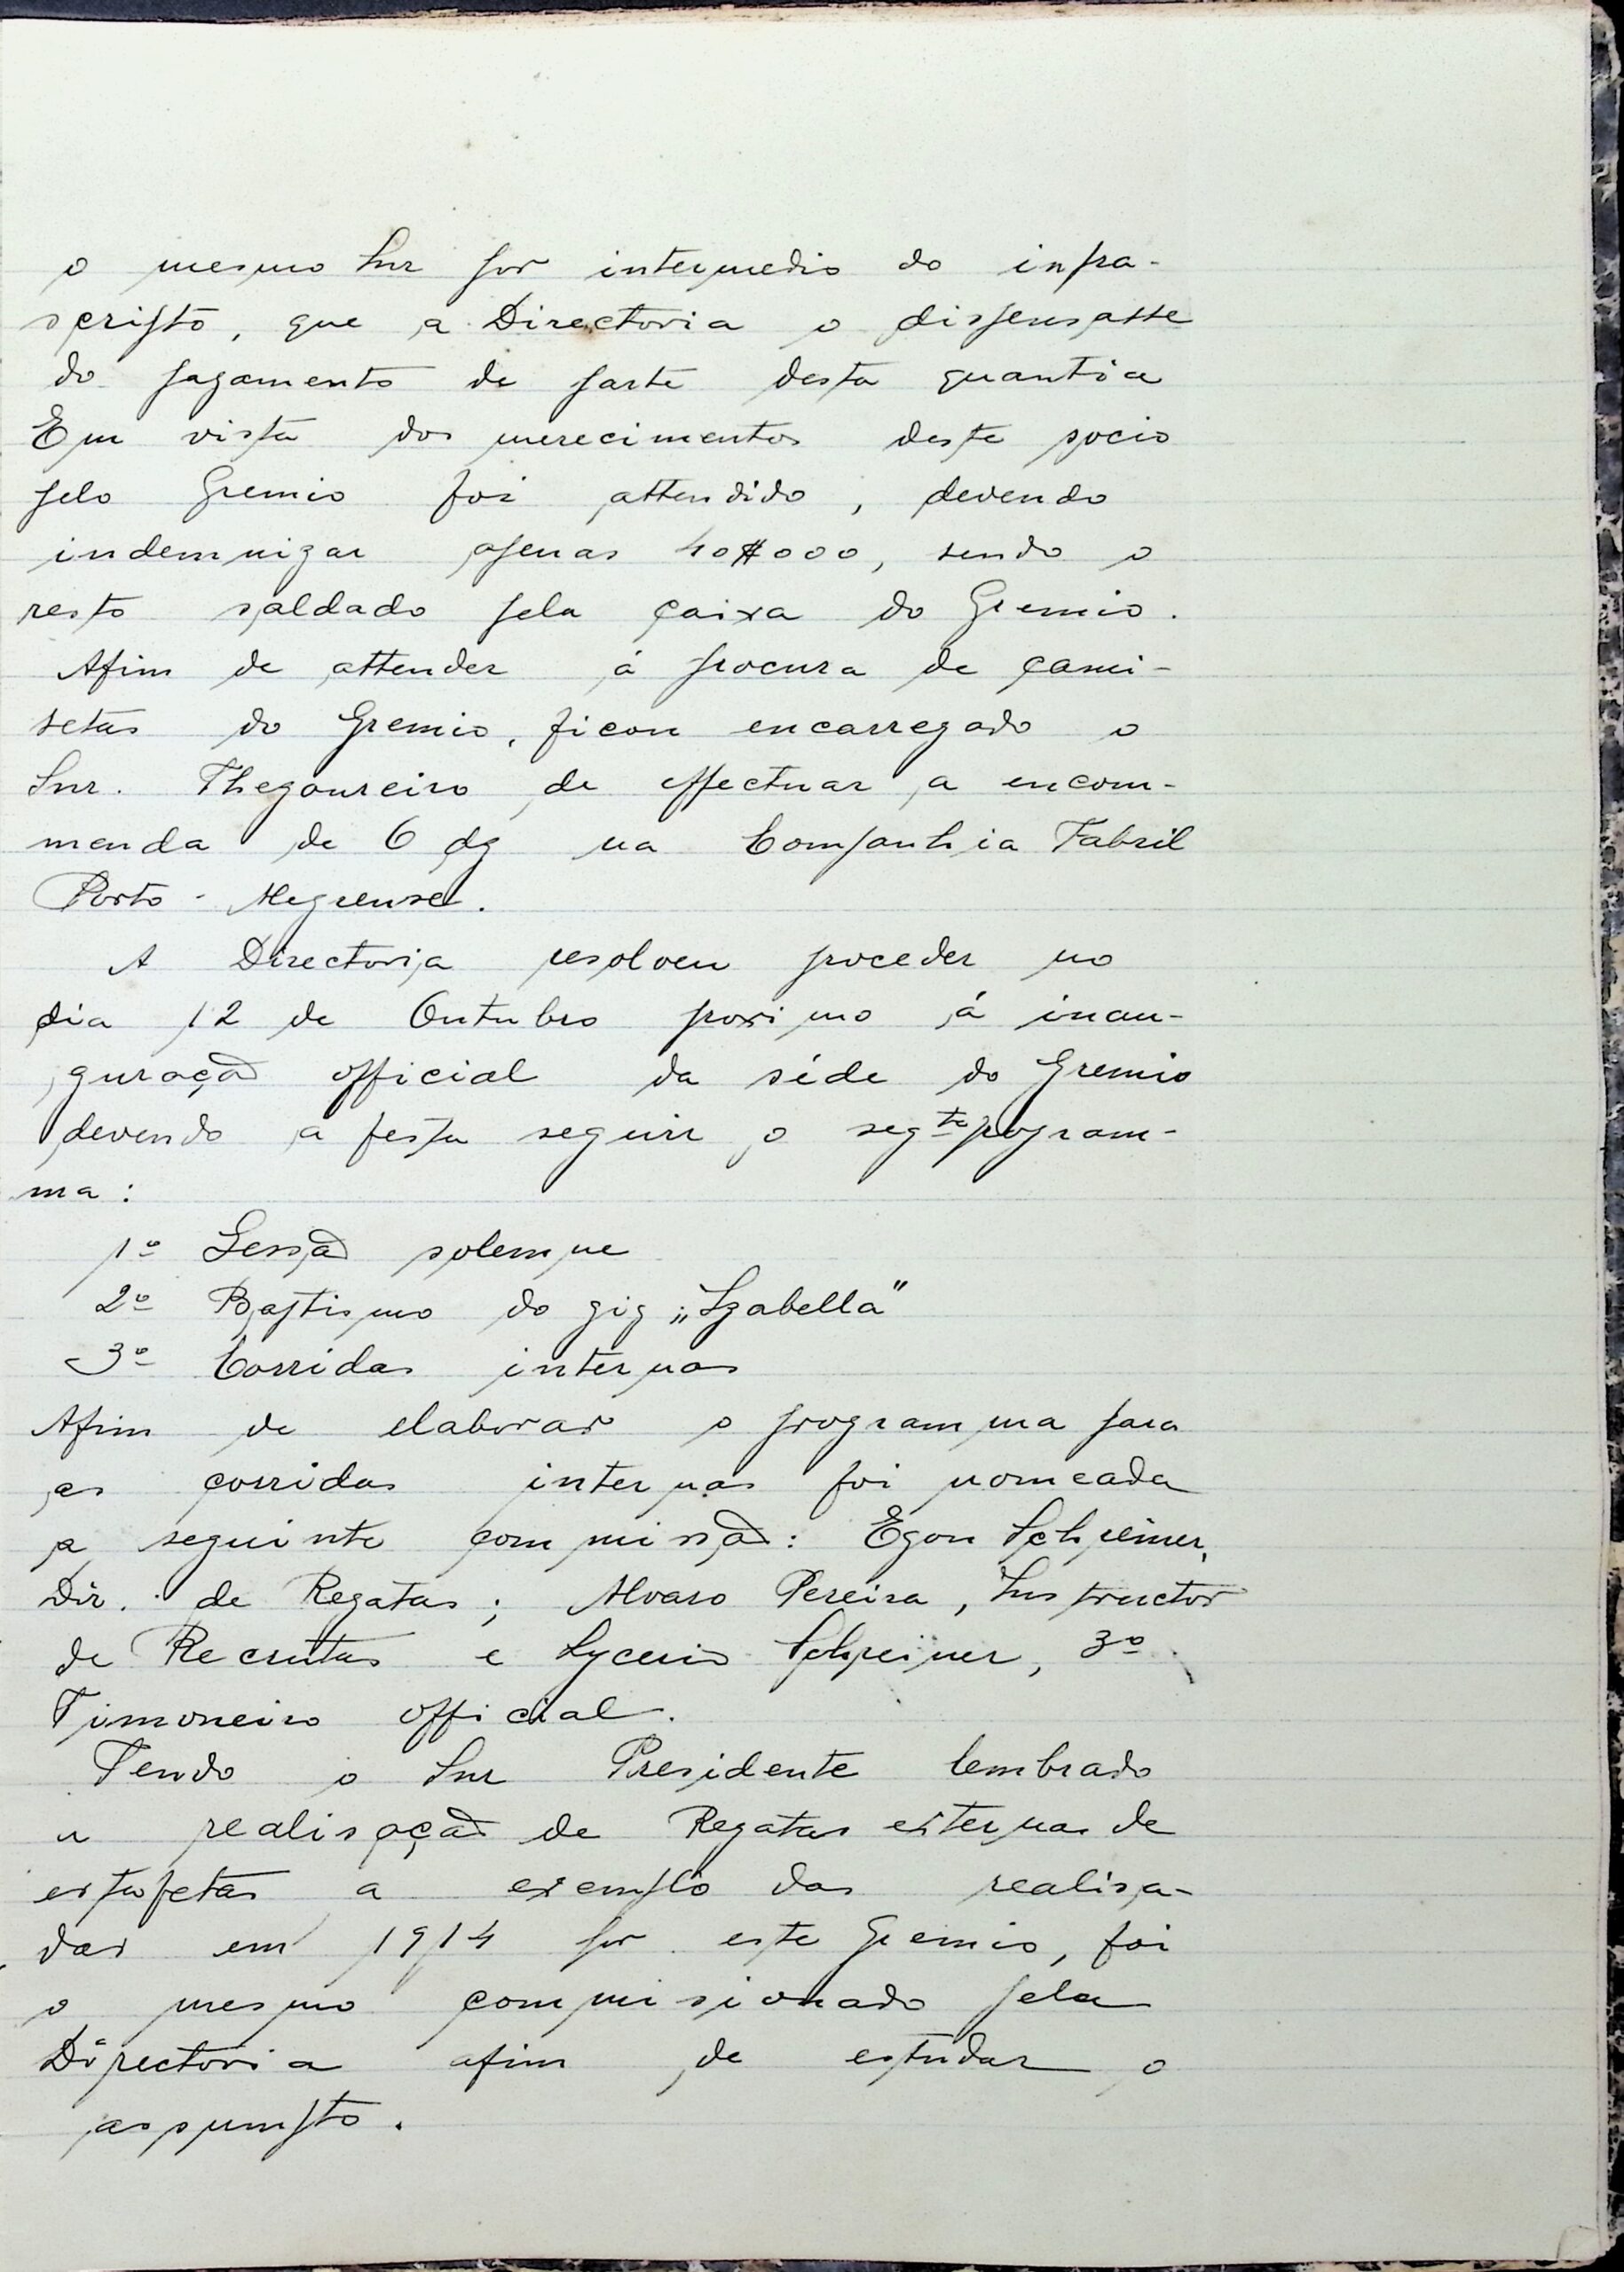 o mesmo Snr por intermedio do infra-
scripto, que a Directoria o dispensasse
do pagamento de parte desta quantia
Em vista dos merecimentos deste socio
pelo Gremio foi attendido, devendo
indemnizar apenas 40$000, sendo o
resto saldado pela caixa do Gremio.
Afim de attender á procura de cami-
setas do Gremio, ficou encarregado o
Snr. Thezoureiro de effectuar a encom-
menda de 6 dz na Companhia Fabril
Porto-Alegrense.
A Directoria resolveu proceder no
dia 12 de Outubro proximo á inau-
guração official da séde do Gremio
devendo a festa seguir o segte program-
ma:
1º Sessão solemne
2º Baptismo do gig „Izabella"
3º Corridas internas
Afim de elaborar o programma para
as corridas internas foi nomeada
a seguinte commissão: Egon Schreiner,
Dir. de Regatas; Alvaro Pereira, Instructor
de Recrutas e Lycerio Schreiner, 3º
Timoneiro official.
Tendo o Snr Presidente lembrado
a realisação de Regatas externas de
estafetas a exemplo das realisa-
das em 1914 por este Gremio, foi
o mesmo commisionado pela
Directoria afim de estudar o
assumpto.